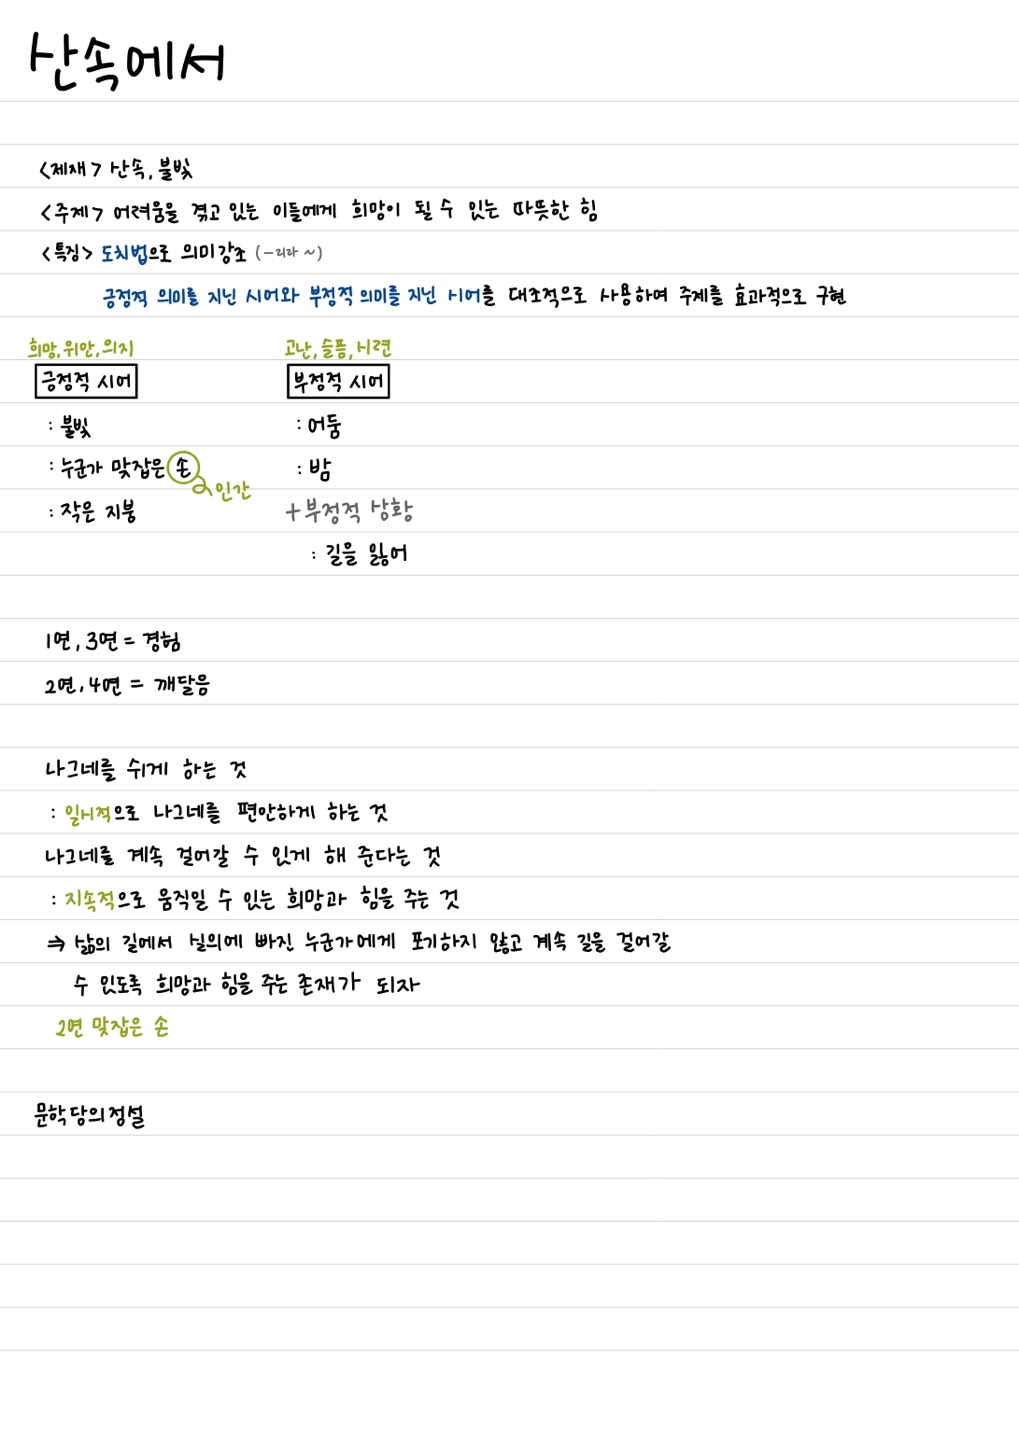 산속에서
<제재> 산속, 불빛
<주제> 어려움을 겪고 있는 이들에게 희망이 될 수 있는 따뜻한 힘
<특징> 도치법으로 의미강조 (-리라 ~)
긍정적 의미를 지닌 시어와 부정적 의미를 지닌 시어를 대조적으로 사용하여 주제를 효과적으로 구현
희망, 위안, 의지 고난, 슬픔, 시련
긍정적 시어 부정적 시어
: 불빛 : 어둠
: 누군가 맞잡은 손 : 밤
인간
: 작은 지붕 + 부정적 상황
: 길을 잃어
1연, 3연 = 경험
2연, 4연 = 깨달음
나그네를 쉬게 하는 것
: 일시적으로 나그네를 편안하게 하는 것
나그네를 계속 걸어갈 수 있게 해 준다는 것
: 지속적으로 움직일 수 있는 희망과 힘을 주는 것
⇒ 삶의 길에서 실의에 빠진 누군가에게 포기하지 않고 계속 길을 걸어갈
수 있도록 희망과 힘을 주는 존재가 되자
2연 맞잡은 손
문학당의정설